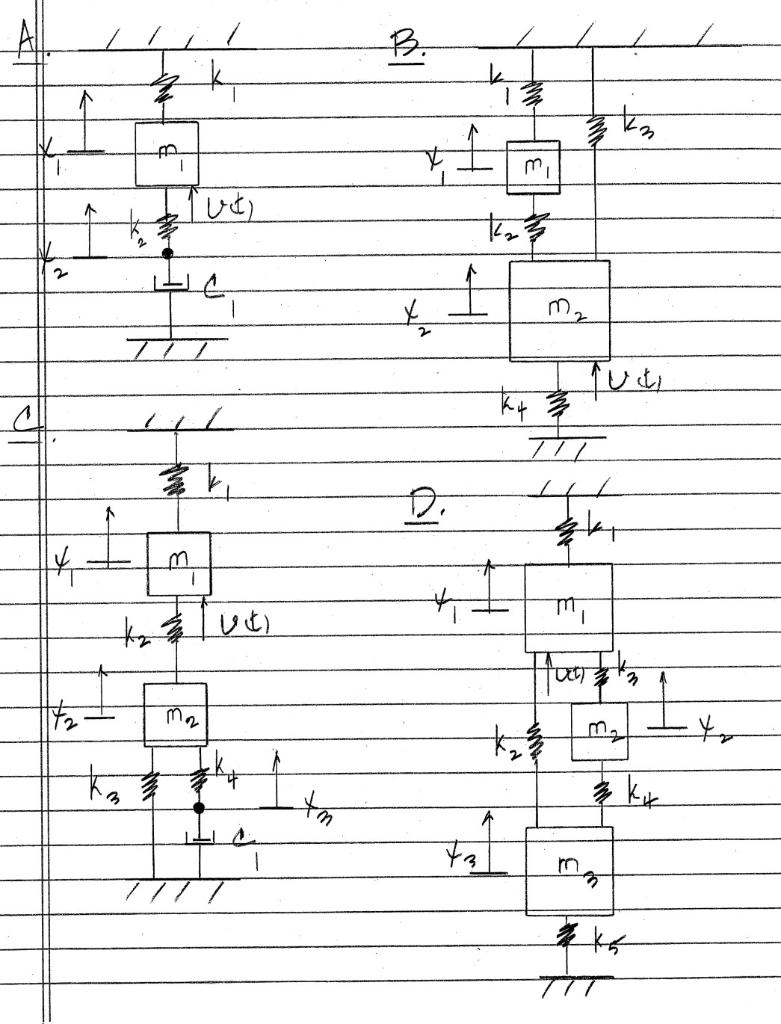 A.
k1
x1
m1
U(t)
k2
x2
C1
B.
k1
k3
x1
m1
k2
x2
m2
U(t)
k4
C.
k1
x1
m1
U(t)
k2
x2
m2
k3
k4
x3
C1
D.
k1
x1
m1
U(t)
k3
k2
m2
x2
k4
x3
m3
k5